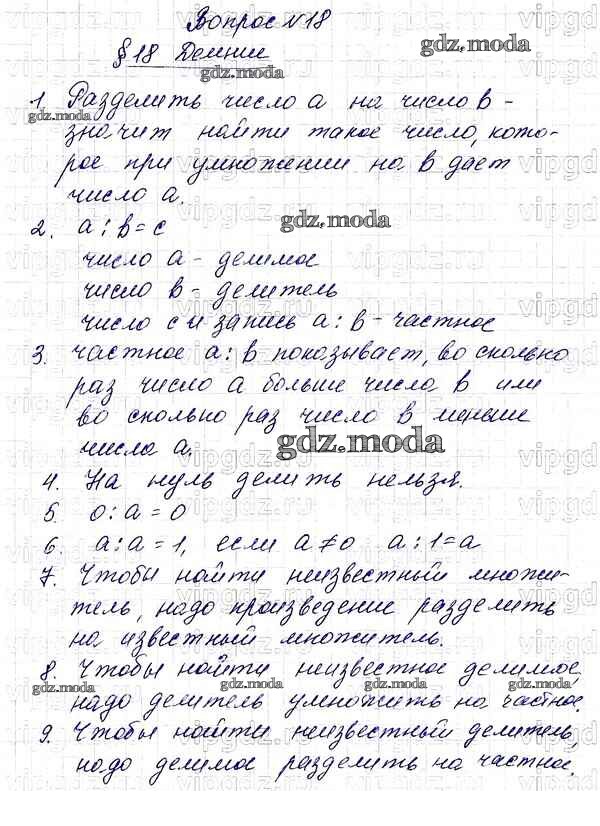 Вопрос №18
§18 Деление
1. Разделить число a на число b -
значит найти такое число, кото-
рое при умножении на b дает
число a.
2. a : b = c
число a - делимое
число b - делитель
число c и запись a : b - частное
3. частное a : b показывает, во сколько
раз число a больше числа b или
во сколько раз число b меньше
числа a.
4. На нуль делить нельзя.
5. 0 : a = 0
6. a : a = 1, если a ≠ 0 a : 1 = a
7. Чтобы найти неизвестный множи-
тель, надо произведение разделить
на известный множитель.
8. Чтобы найти неизвестное делимое,
надо делитель умножить на частное.
9. Чтобы найти неизвестный делитель,
надо делимое разделить на частное.
gdz.moda
vipgdz.ru